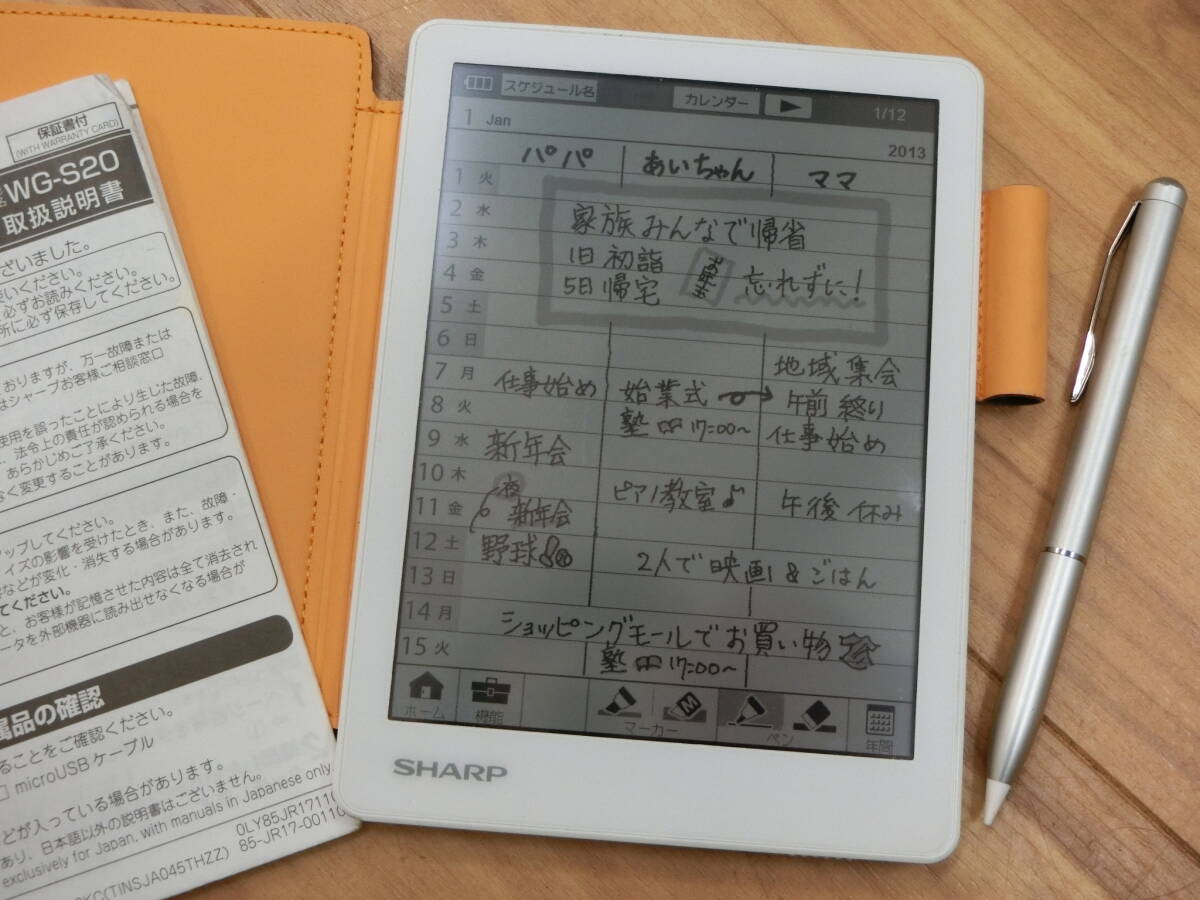 保証書付
(WITH WARRANTY CARD)
WG-S20
取扱説明書
ざいました。
いください。
必ずお読みください。
所に必ず保存してください。
おりますが、万一故障または
はシャープお客様ご相談窓口
使用を誤ったことにより生じた故障、
法令上の責任が認められる場合を
あらかじめご了承ください。
なく変更することがあります。
ップしてください。
イズの影響を受けたとき、また、故障・
などが変化・消失する場合があります。
てください。
と、お客様が記憶させた内容は全て消去され
ータを外部機器に読み出せなくなる場合が
属品の確認
ることをご確認ください。
□ microUSB ケーブル
どが入っている場合があります。
あり、日本語以外の説明書はございません。
exclusively for Japan, with manuals in Japanese only.
0LY85JR1711
85-JR17-0011
KC(TINSJA045THZZ)
スケジュール名
カレンダー
1/12
1 Jan
2013
パパ あいちゃん ママ
1 火
2 水
家族みんなで帰省
3 木
1日 初詣
4 金
忘れずに!
5日 帰宅
5 土
6 日
地域集会
7 月
仕事始め 始業式 午前 終り
8 火
塾 17:00~ 仕事始め
9 水
新年会
10 木
夜
ピアノ教室♪ 午後 休み
11 金
新年会
12 土
野球
2人で映画 & ごはん
13 日
14 月
ショッピングモールでお買い物
15 火
塾 17:00~
ホーム 機能 マーカー ペン 年間
SHARP